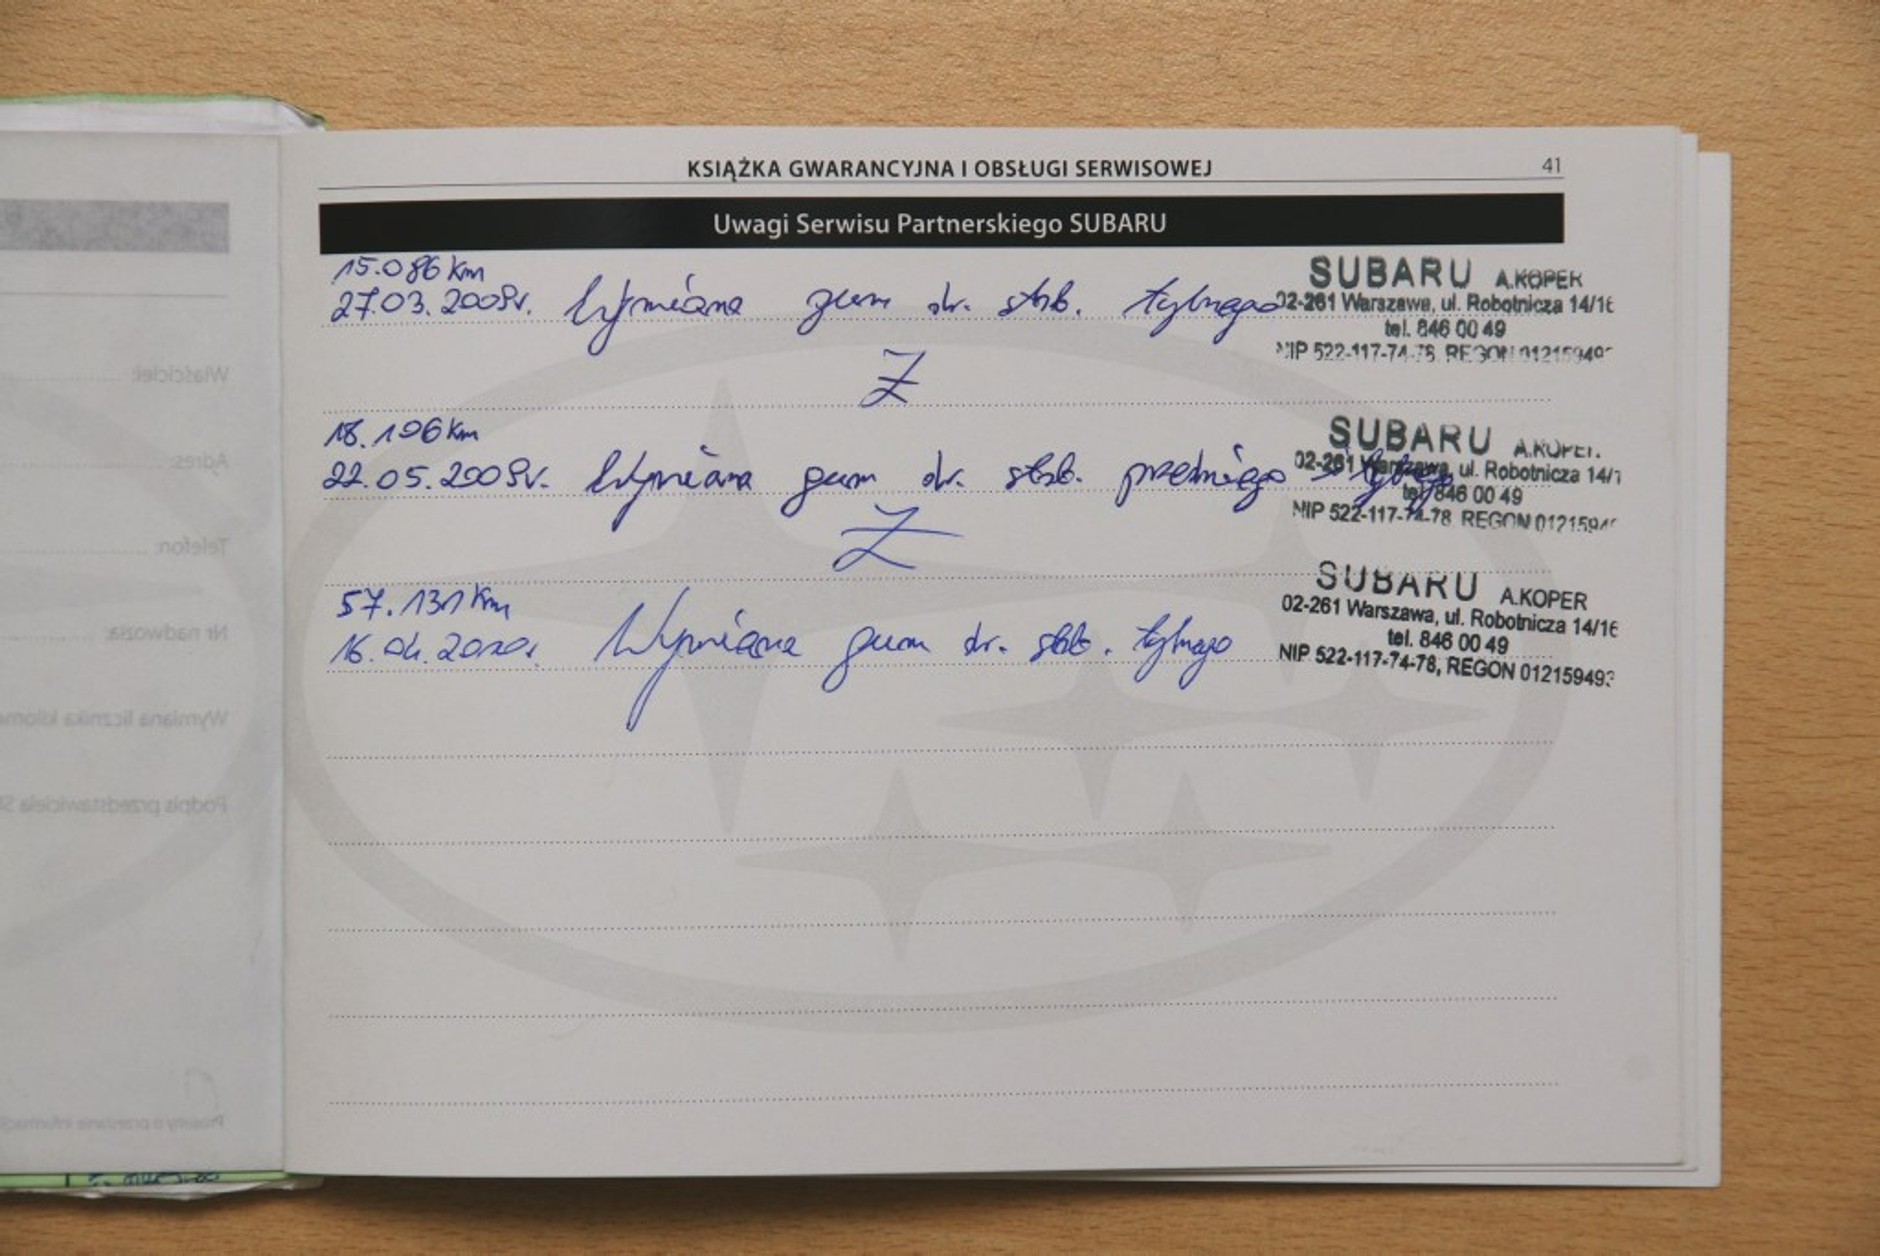 KSIĄŻKA GWARANCYJNA I OBSŁUGI SERWISOWEJ 41
Uwagi Serwisu Partnerskiego SUBARU
15.086 km
27.03.2009r. Wymiana gum dr. stab. tylnego
SUBARU A.KOPER
02-261 Warszawa, ul. Robotnicza 14/16
tel. 846 00 49
NIP 522-117-74-78, REGON 012159493
Z
18.196 km
22.05.2009r. Wymiana gum dr. stab. przedniego
SUBARU A.KOPER
02-261 Warszawa, ul. Robotnicza 14/1
tel. 846 00 49
NIP 522-117-74-78 REGON 0121594
Z
57.131 km
16.04.2010r. Wymiana gum dr. stab. tylnego
SUBARU A.KOPER
02-261 Warszawa, ul. Robotnicza 14/16
tel. 846 00 49
NIP 522-117-74-78, REGON 012159493
Właściciel:
Adres:
Telefon:
Nr nadwozia:
Wymiana licznika
Podpis przedstawiciela
Prosimy o przesłanie